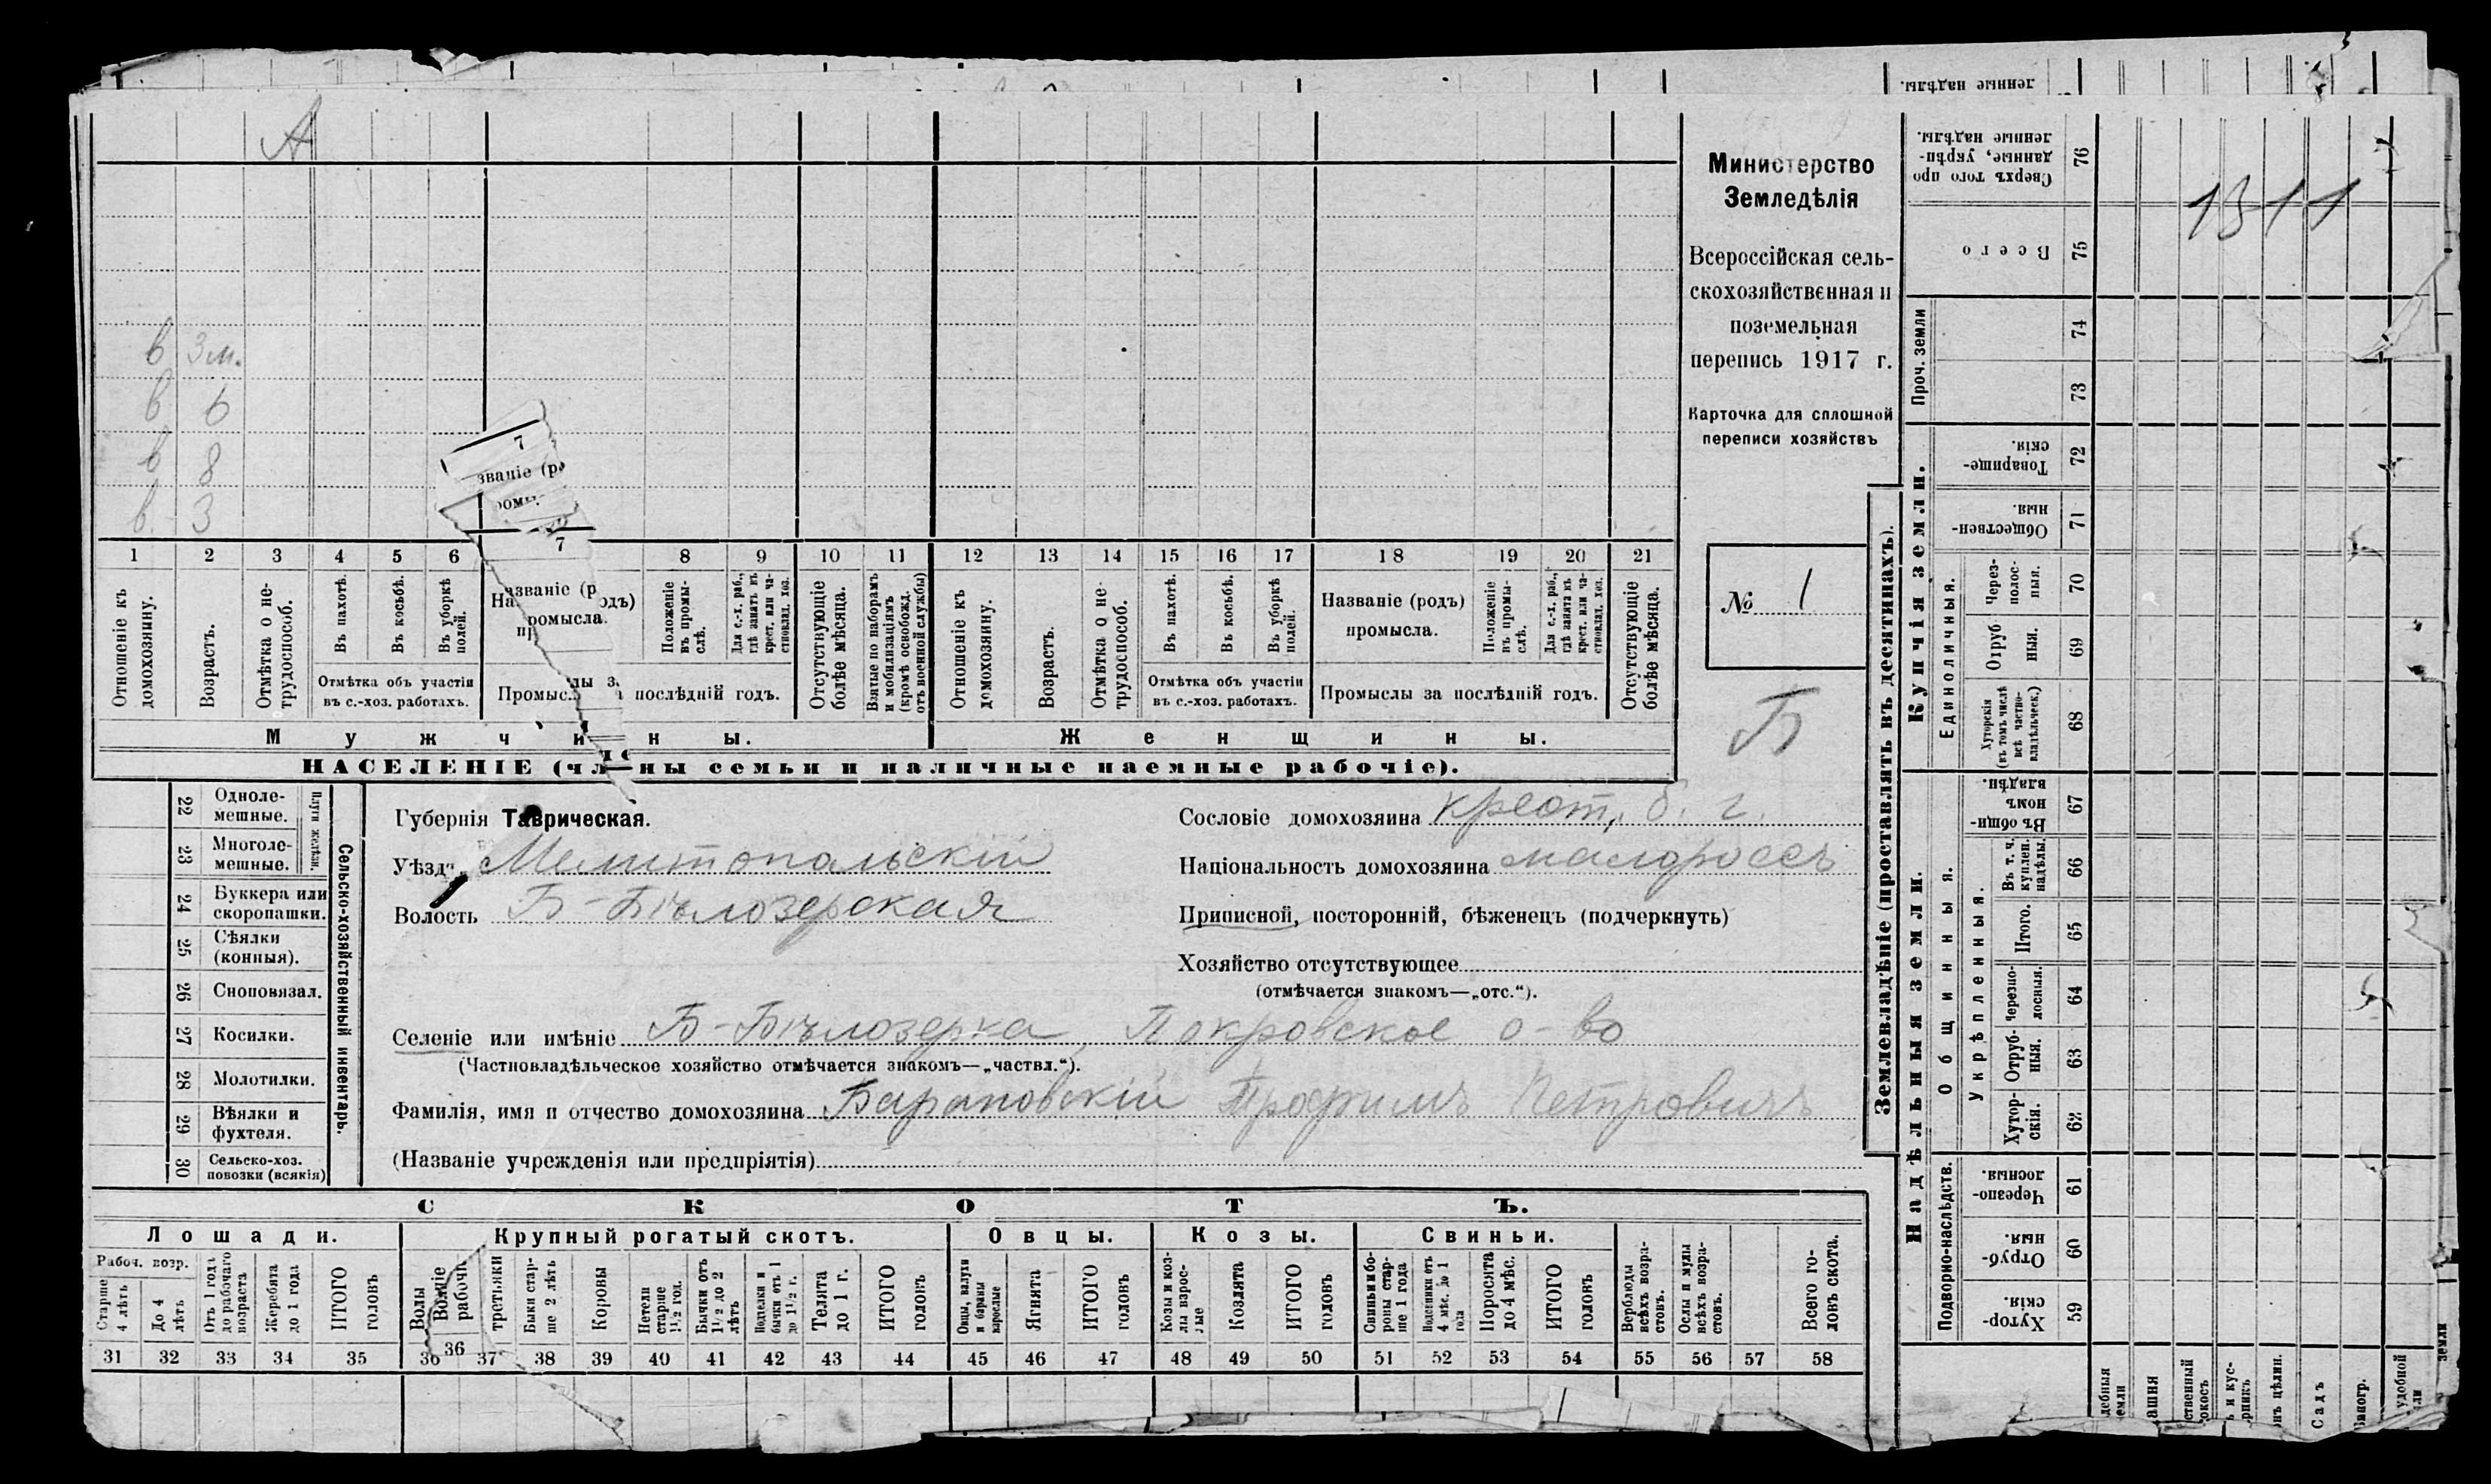 ленные надѣлы.
А
в 3 м.
в 6
в 8
в. 3
7
званіе (ро
ромы
1 2 3 4 5 6 7 8 9 10 11 12 13 14 15 16 17 18 19 20 21
Отношеніе къ домохозяину.
Возрастъ.
Отмѣтка о нетрудоспособ.
Въ пахотѣ.
Въ косьбѣ.
Въ уборкѣ полей.
Отмѣтка объ участіи въ с.-хоз. работахъ.
Названіе (родъ) промысла.
Положеніе въ промыслѣ.
Для с.-х. раб., гдѣ занятъ въ крест. или частновлад. хоз.
Промыслы за послѣдній годъ.
Отсутствующіе болѣе мѣсяца.
Взятые по наборамъ и мобилизаціямъ (кромѣ освобожд. отъ военной службы)
Отношеніе къ домохозяину.
Возрастъ.
Отмѣтка о нетрудоспособ.
Въ пахотѣ.
Въ косьбѣ.
Въ уборкѣ полей.
Отмѣтка объ участіи въ с.-хоз. работахъ.
Названіе (родъ) промысла.
Положеніе въ промыслѣ.
Для с.-х. раб., гдѣ занята въ крест. или частновлад. хоз.
Промыслы за послѣдній годъ.
Отсутствующіе болѣе мѣсяца.
Мужчины.
Женщины.
НАСЕЛЕНІЕ (члены семьи и наличные наемные рабочіе).
Министерство
Земледѣлія
Всероссійская сель-
скохозяйственная и
поземельная
перепись 1917 г.
Карточка для сплошной
переписи хозяйствъ
№ 1
Б
22 Одноле-мешные.
23 Многоле-мешные.
Плуги желѣзн.
24 Буккера или скоропашки.
25 Сѣялки (конныя).
26 Сноповязал.
27 Косилки.
28 Молотилки.
29 Вѣялки и фухтеля.
30 Сельско-хоз. повозки (всякія)
Сельско-хозяйственный инвентарь.
Губернія Таврическая.
Сословіе домохозяина крест., б. г.
Уѣздъ Мелитопольскій
Національность домохозяина малороссъ
Волость Б-Бѣлозерская
Приписной, посторонній, бѣженецъ (подчеркнуть)
Хозяйство отсутствующее
(отмѣчается знакомъ—„отс.“).
Селеніе или имѣніе Б-Бѣлозерка, Покровское о-во
(Частновладѣльческое хозяйство отмѣчается знакомъ—„частвл.“).
Фамилія, имя и отчество домохозяина Барановскій Трофимъ Петровичъ
(Названіе учрежденія или предпріятія)
СКОТЪ.
Лошади.
Крупный рогатый скотъ.
Овцы.
Козы.
Свиньи.
Рабоч. возр.
Старше 4 лѣтъ
До 4 лѣтъ
Отъ 1 года до рабочаго возраста
Жеребята до 1 года
ИТОГО головъ
Волы рабочіе
третьяки
Быки старше 2 лѣтъ
Коровы
Нетели старше 1½ год.
Бычки отъ 1½ до 2 лѣтъ
Подтелки и бычки отъ 1 до 1½ г.
Телята до 1 г.
ИТОГО головъ
Овцы, валухи и бараны взрослые
Ягнята
ИТОГО головъ
Козы и козлы взрослые
Козлята
ИТОГО головъ
Свиньи и боровы старше 1 года
Подсвинки отъ 4 мѣс. до 1 года
Поросята до 4 мѣс.
ИТОГО головъ
Верблюды всѣхъ возрастовъ.
Ослы и мулы всѣхъ возрастовъ.
Всего головъ скота.
31 32 33 34 35 36 36 37 38 39 40 41 42 43 44 45 46 47 48 49 50 51 52 53 54 55 56 57 58
Землевладѣніе (проставлять въ десятинахъ).
Купчія земли.
Надѣльныя земли.
Проч. земли
Единоличныя.
Общинныя.
Укрѣпленныя.
Подворно-наслѣдств.
76 Сверхъ того проданные, укрѣпленные надѣлы.
75 Всего
74
73
72 Товарищескія.
71 Общественныя.
70 Через-полос-ныя.
69 Отруб ныя.
68 Хуторскія (въ томъ числѣ всѣ частно-владѣльческ.)
67 Въ общинномъ владѣн.
66 Въ т. ч. куплен. надѣлы.
65 Итого.
64 Черезпо-лосныя.
63 Отруб-ныя.
62 Хутор-скія.
61 Черезпо-лосныя.
60 Отруб-ныя.
59 Хутор-скія.
1311
дебныя емли
ашня
ственный окосъ
ь и кус-рникъ
нь цѣлин.
Садъ
Виногр.
удобной ли
земли